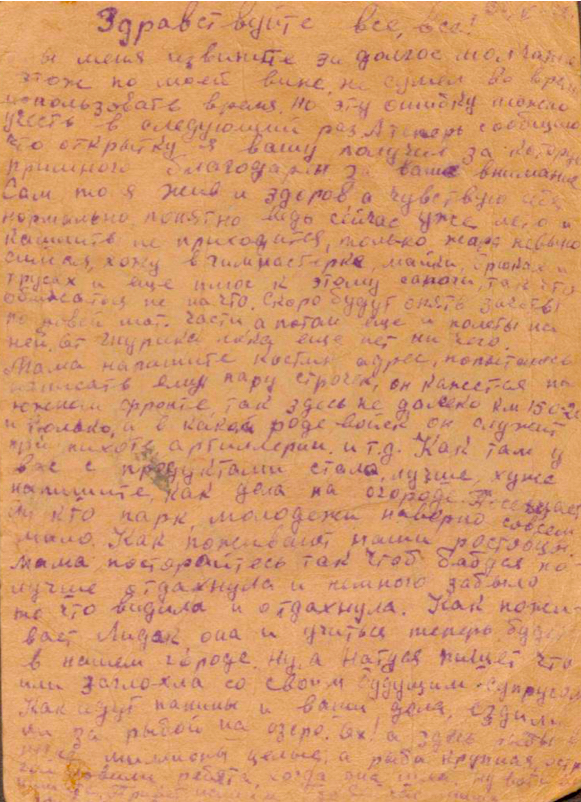 Здравствуйте все, все!
ы меня извините за долгое молчание
этож по моей вине, не сумел во время
использовать время. Но эту ошибку можно
учесть в следующий раз. А теперь сообщаю
что открытку я вашу получил за которую
благодарю за ваше внимание
Сам то я жив и здоров а чувствую себя
нормально понятно ведь сейчас уже лето и
не приходится, только жара невыно
симая, хожу в гимнастерке, майки, брюках и
трусах и еще плюс к этому сапоги, так что
обижатся не на что. Скоро будут опять зачеты
по новой мат. части, а потом еще и полеты на
ней. от Шурика пока еще нет ни чего.
Мама напишите Костин адрес, попытаюсь
написать ему пару строчек, он кажется на
южном фронте, так здесь не далеко км 150-20
и только, и в каком роде войск он служит
при пехоте артиллерии. и т.д. Как там у
вас с продуктами стало, лучше, хуже
напишите, как дела на огороде.
ли кто парк, молодежи наверно совсем
мало. Как поживают наши
Мама, постарайтесь так чтоб бабуся по
лучше отдахнула и немного забыла
то что видила и отдахнула. Как пожи
вает Лида она и учиться теперь буде
в нашем городе. Ну, а Натуся пишет что
или заглохла со своим будущим супругом
Как идут папины и ваши дела, ездили
ли за рыбой на озеро. ох! а здесь рыбы
миллионы целые, а рыба крупная,
ловили ребята, когда она шла